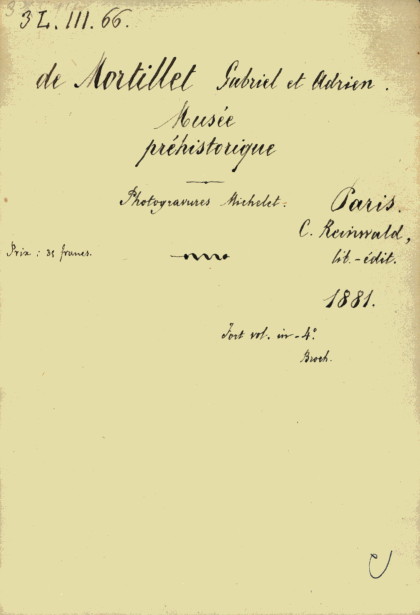 3L.III.66.
de Mortillet Gabriel et Adrien.
Musée
préhistorique
Photogravures Michelet:
Paris.
C. Reinwald,
lib.-édit.
Prix: 35 francs.
1881.
Fort vol. in-4°.
Broch.